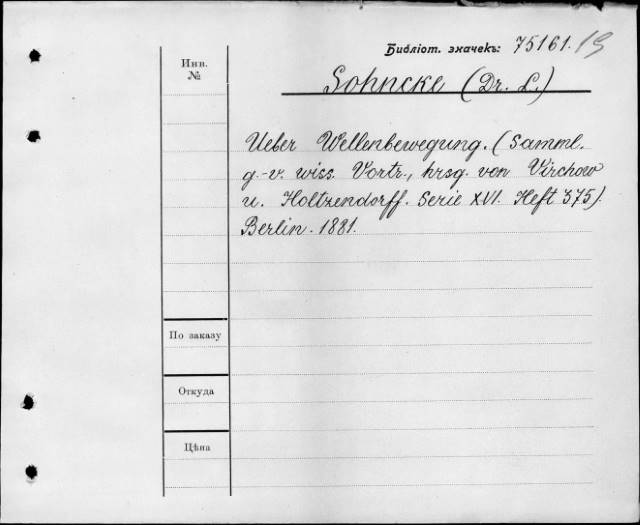 Библіот. значекъ: 75161.19
Инв.
№
Sohncke (Dr. L.)
Ueber Wellenbewegung. (Samml.
g.-v. wiss. Vortr., hrsg. von Virchow
u. Holtzendorff. Serie XVI. Heft 375).
Berlin. 1881.
По заказу
Откуда
Цѣна